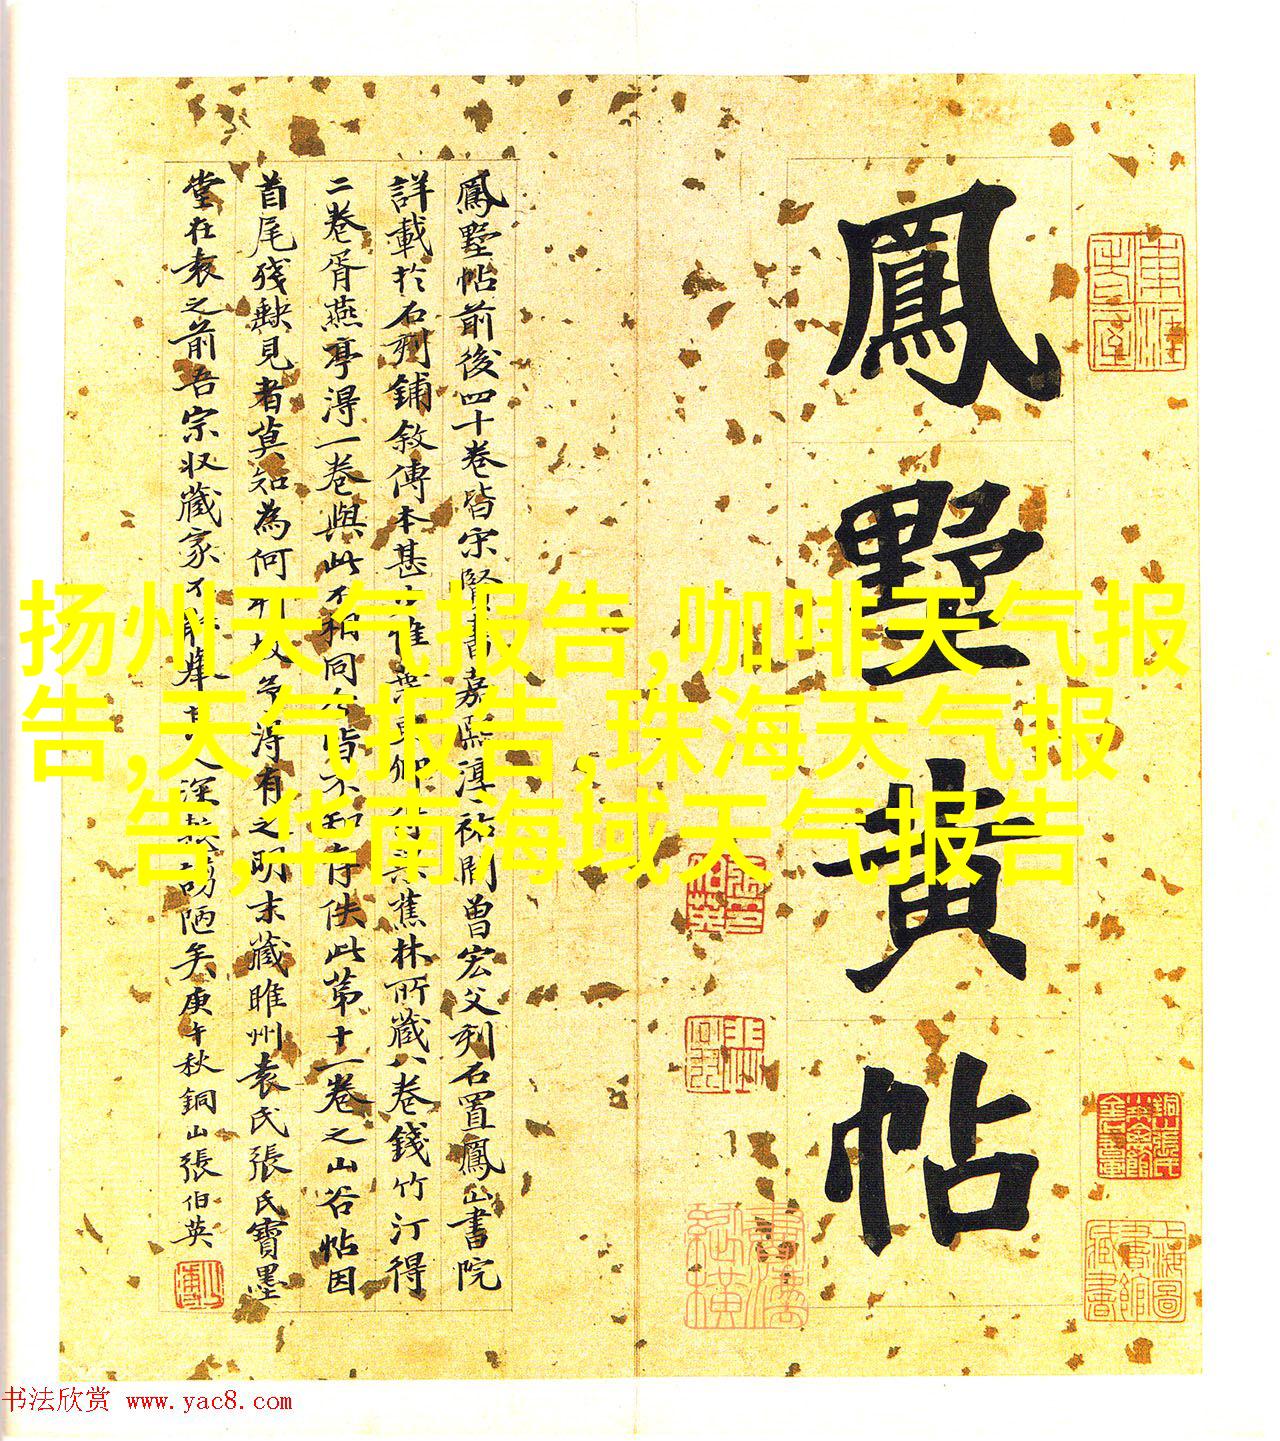 鳳墅黄帖
鳳墅帖前後四十卷皆宋賢書嘉熙淳祐間曾宏父刻石置鳳山書院
詳載於石刻鋪敘傳本甚
林所藏八卷錢竹汀得
二卷胥燕亭得一卷與此不相同
存佚此第十一卷之山谷帖因
首尾殘缺見者莫知為何
得有之明末藏睢州袁氏張氏寶墨
堂在袁之前吾宗収藏家不
陋矣庚午秋銅山張伯英
扬州天气报告,咖啡天气报
告,天气报告,珠海天气报
告,华南海域天气报告
上海圖書館藏書
书法欣赏 www.yac8.com